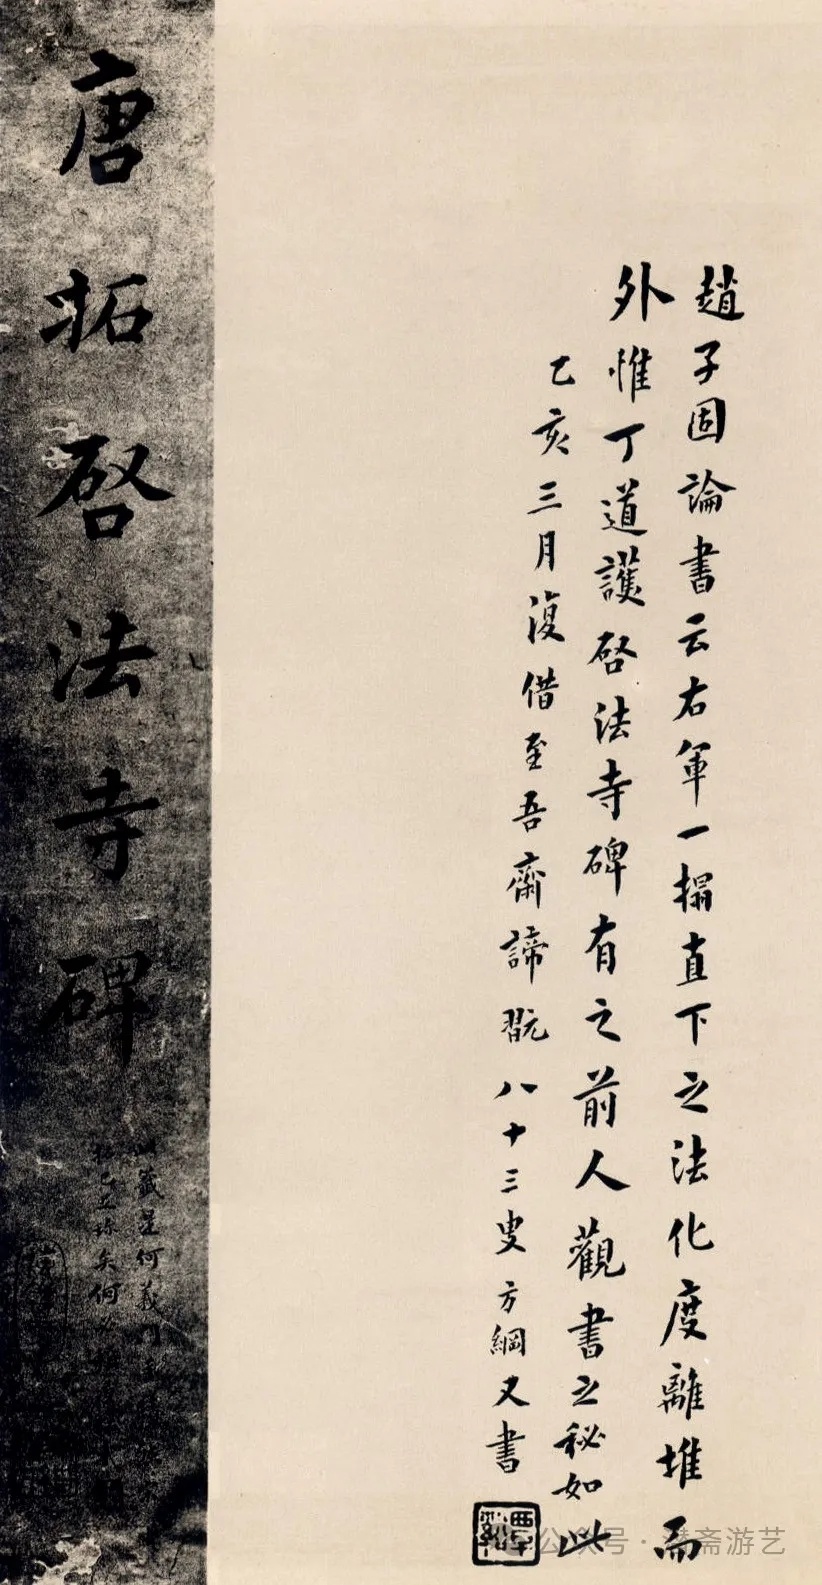 趙子固論書云右軍一搨直下之法化度離堆而
外惟丁道護啓法寺碑有之前人觀書之秘如此
乙亥三月復借至吾齋諦翫八十三叟方綱又書
唐拓啓法寺碑
籤是何義門
公众号·潜斋游艺